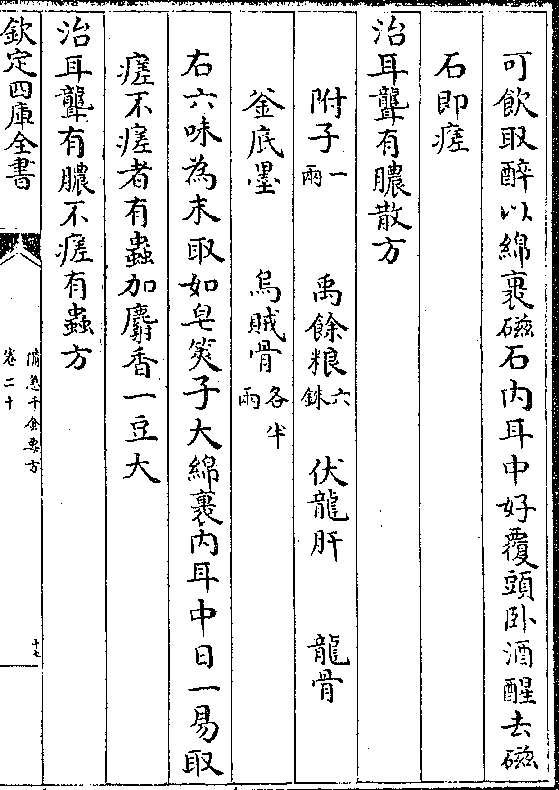 可飲取醉以綿裹磁石内耳中好覆頭卧酒醒去磁
石即瘥
治耳聾有膿散方
附子一兩 禹餘粮六銖 伏龍肝 龍骨
釜底墨 烏賊骨各半兩
右六味為末取如皂筴子大綿裹内耳中日一易取
瘥不瘥者有蟲加麝香一豆大
治耳聾有膿不瘥有蟲方
欽定四庫全書
備急千金要方
卷二十
十七